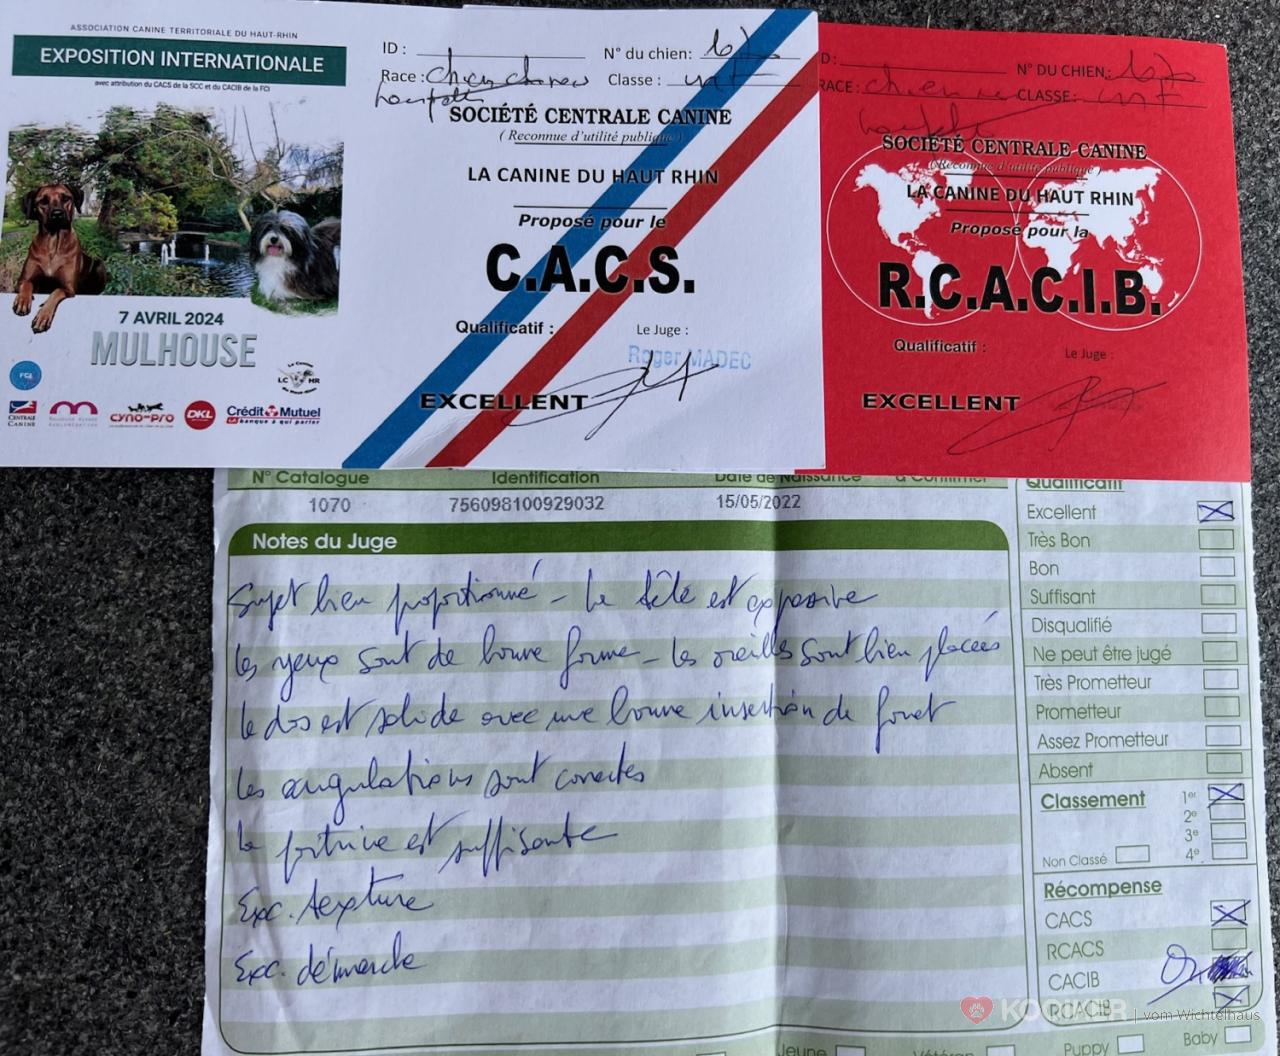 ASSOCIATION CANINE TERRITORIALE DU HAUT-RHIN
EXPOSITION INTERNATIONALE
avec attribution du CACS de la SCC et du CACIB de la FCI
7 AVRIL 2024
MULHOUSE
FCI
LC HR
CENTRALE CANINE
cyno-pro
DKL
Crédit Mutuel
LA banque à qui parler
ID :
N° du chien: 1070
Race : chien chinois
Classe : int F
houppette
SOCIÉTÉ CENTRALE CANINE
( Reconnue d'utilité publique )
LA CANINE DU HAUT RHIN
Proposé pour le
C.A.C.S.
Qualificatif :
Le Juge :
Roger MADEC
EXCELLENT
D:
N° DU CHIEN: 1070
RACE: chien
CLASSE: int F
SOCIÉTÉ CENTRALE CANINE
(Reconnue d'utilité publique )
LA CANINE DU HAUT RHIN
Proposé pour la
R.C.A.C.I.B.
Qualificatif :
Le Juge :
EXCELLENT
N° Catalogue Identification Date de Naissance à Confirmer
1070 756098100929032 15/05/2022
Notes du Juge
Sujet bien proportionné - La tête est expressive
les yeux sont de bonne forme - les oreilles sont bien placées
le dos est solide avec une bonne insertion de fouet
les angulations sont correctes
la poitrine est suffisante
Exc. texture
Exc. démarche
Qualificatif
Excellent
Très Bon
Bon
Suffisant
Disqualifié
Ne peut être jugé
Très Prometteur
Prometteur
Assez Prometteur
Absent
Classement 1er
2e
3e
Non Classé 4e
Récompense
CACS
RCACS
CACIB
RCACIB
Jeune Vétéran Puppy Baby
vom Wichtelhaus